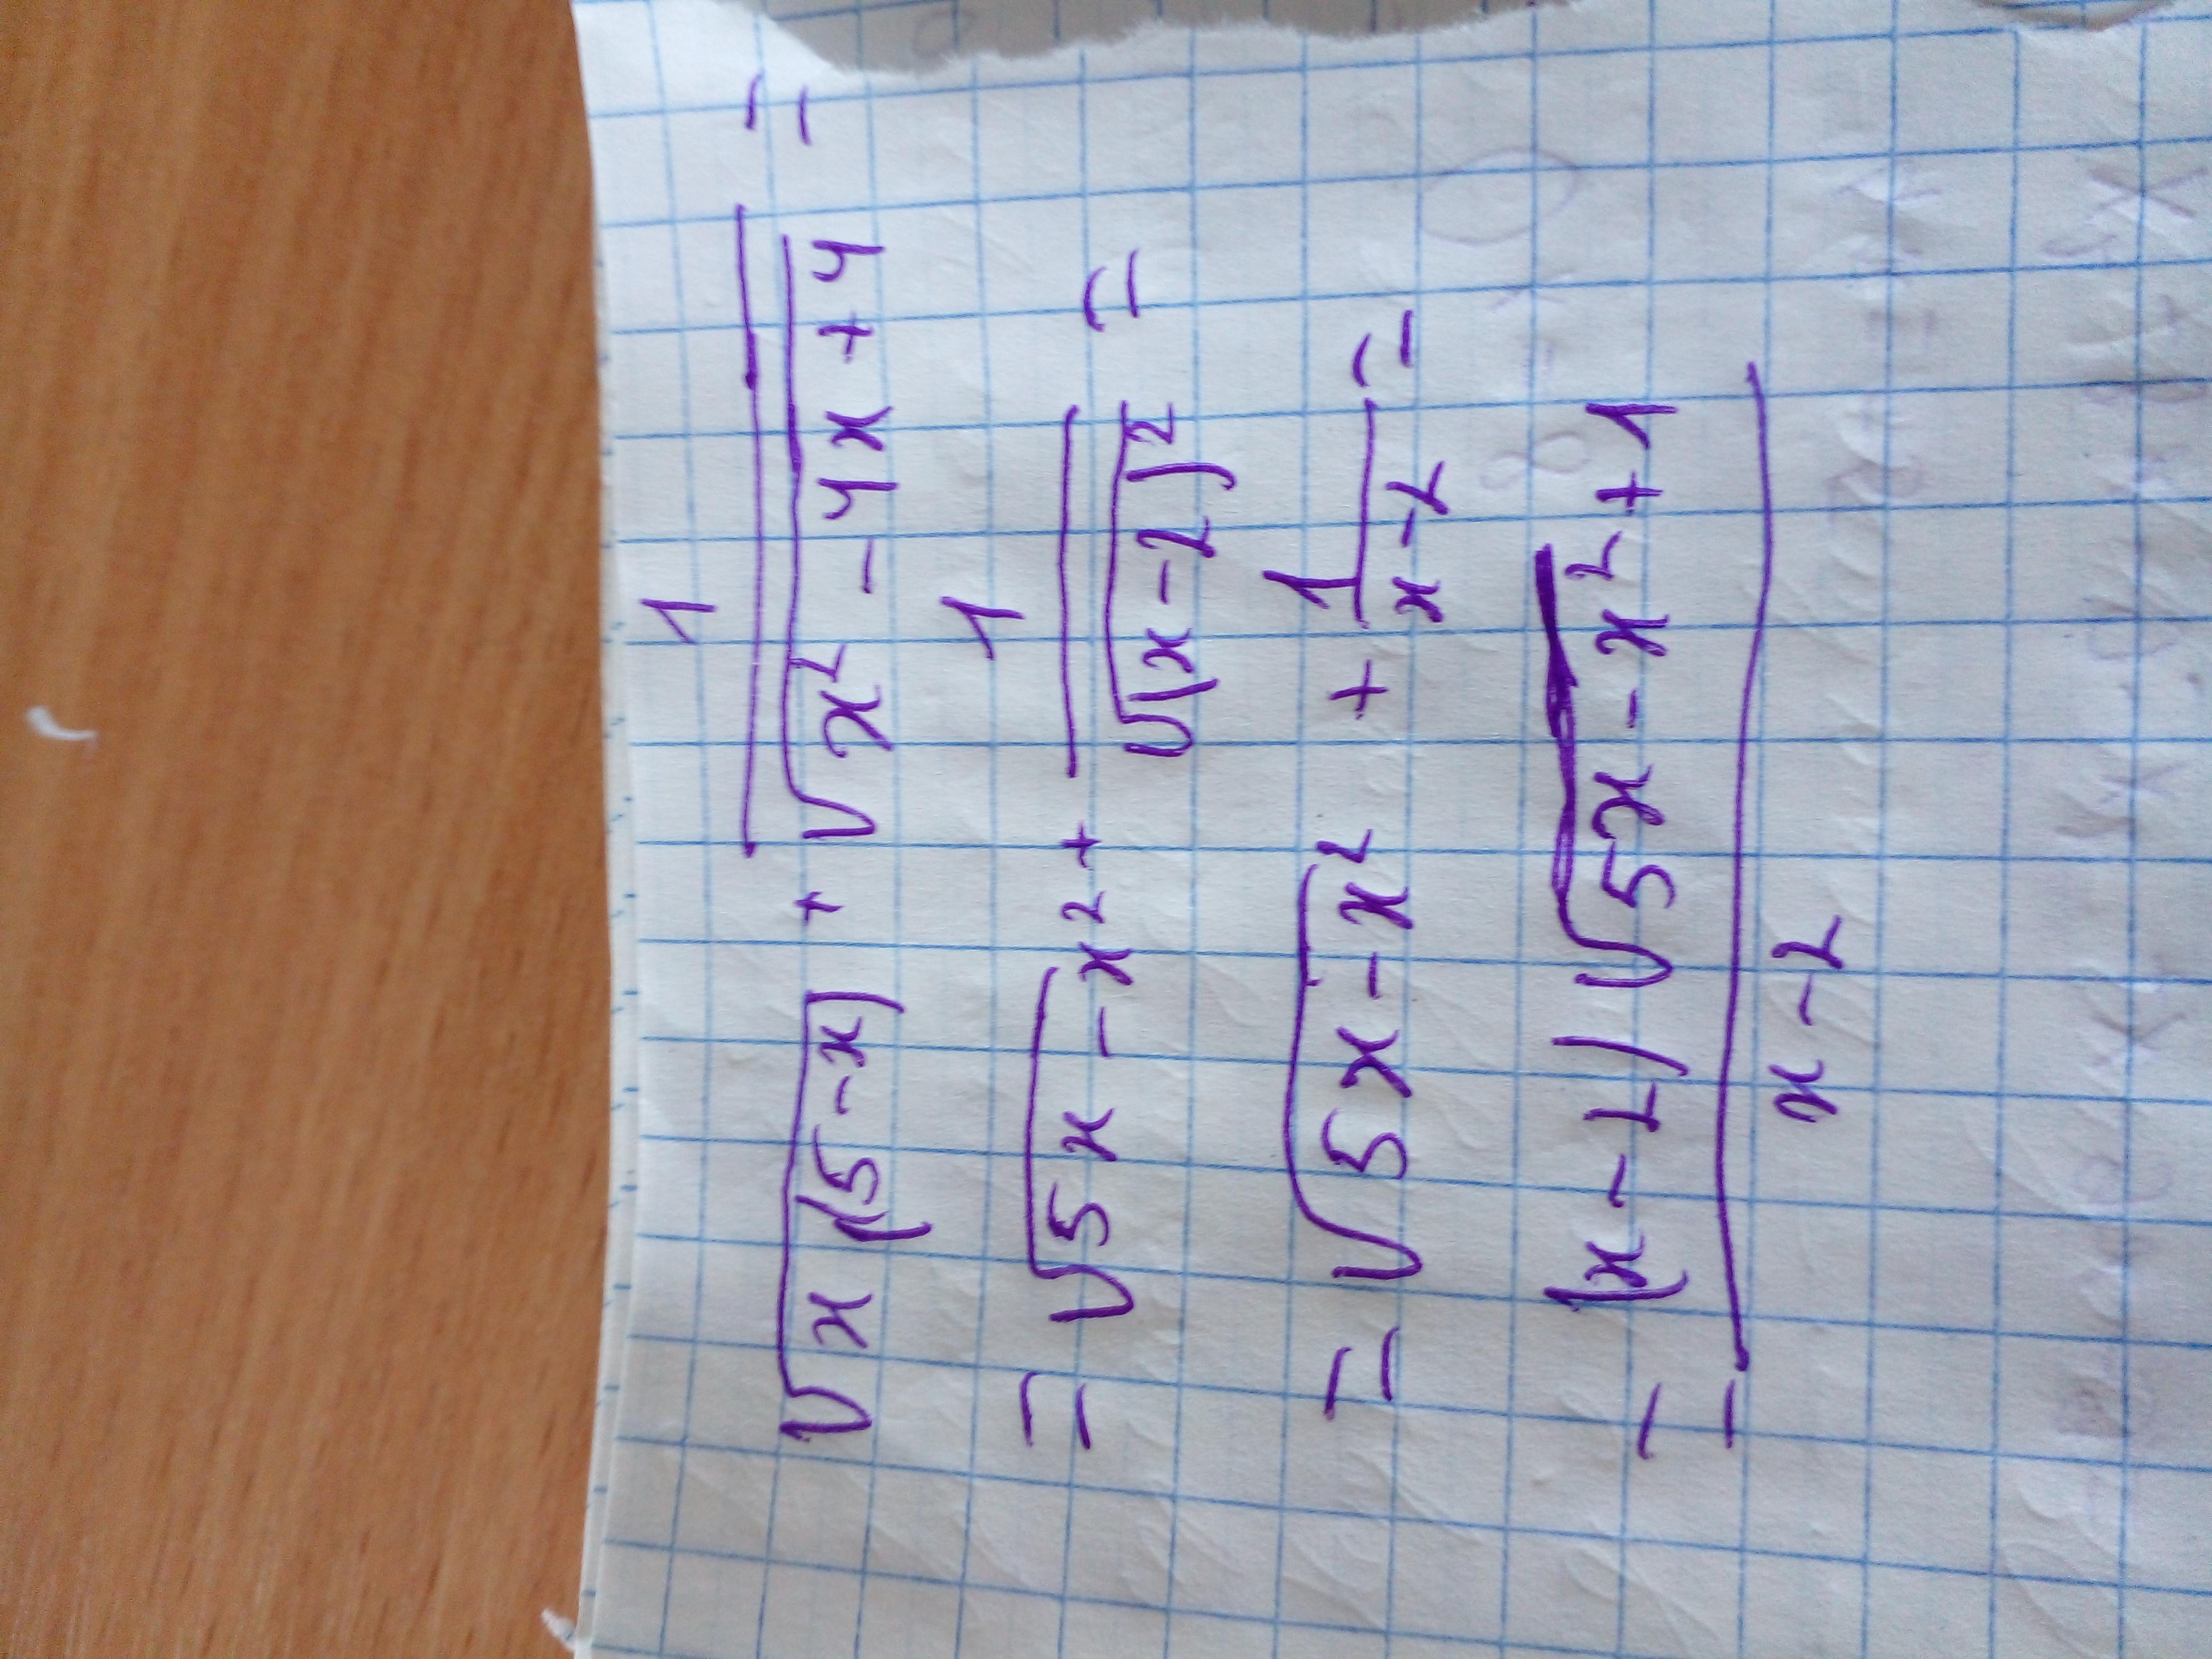 √(x(5-x)) + 1/√(x² - 4x + 4) =
= √(5x - x²) + 1/√((x-2)²) =
= √(5x - x²) + 1/(x-2) =
= ((x-2)√(5x - x²) + 1)/(x-2)